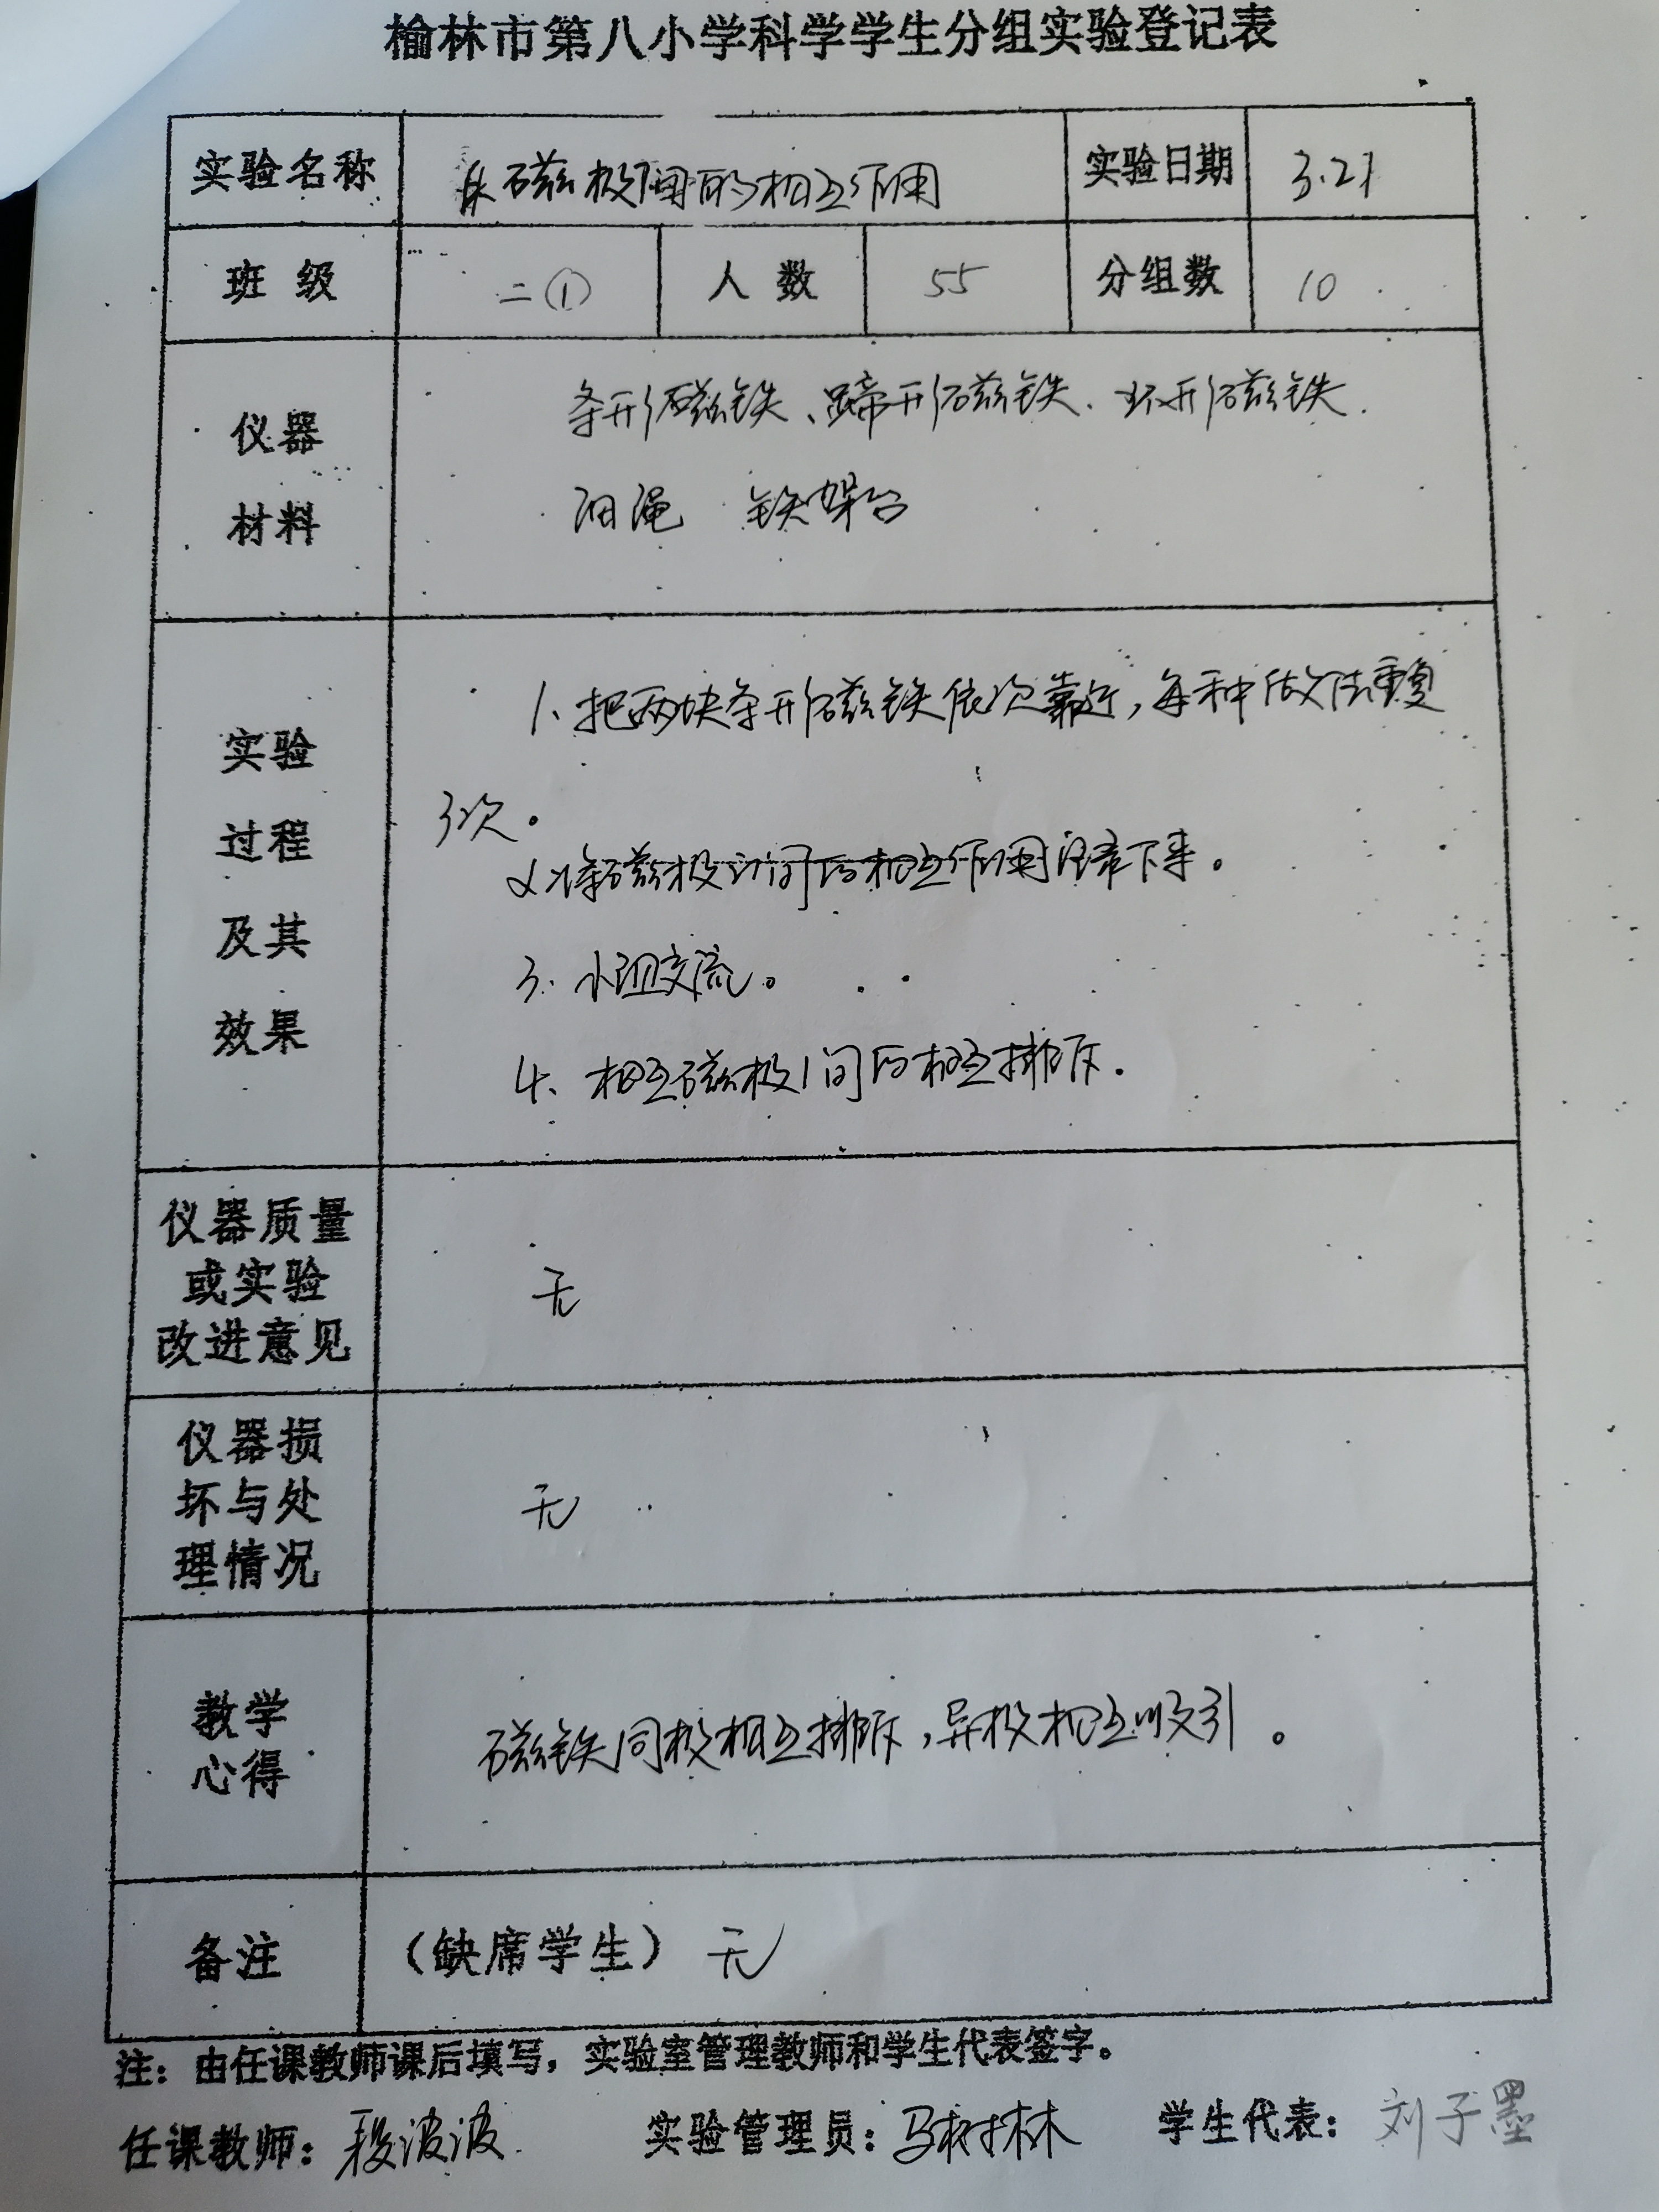 榆林市第八小学科学学生分组实验登记表
实验名称 磁极间的相互作用 实验日期 3.27
班级 二① 人数 55 分组数 10
仪器 条形磁铁、蹄形磁铁、环形磁铁.
材料 细绳 铁架台
实验 1、把两块条形磁铁依次靠近,每种做法重复
过程 3次。
2、将磁极之间的相互作用记录下来。
及其 3、小组交流。
效果 4、相互磁极间的相互排斥.
仪器质量
或实验 无
改进意见
仪器损
坏与处 无
理情况
教学 磁铁同极相互排斥,异极相互吸引。
心得
备注 (缺席学生) 无
注:由任课教师课后填写,实验室管理教师和学生代表签字。
任课教师:段波波 实验管理员:马树林 学生代表:刘子墨